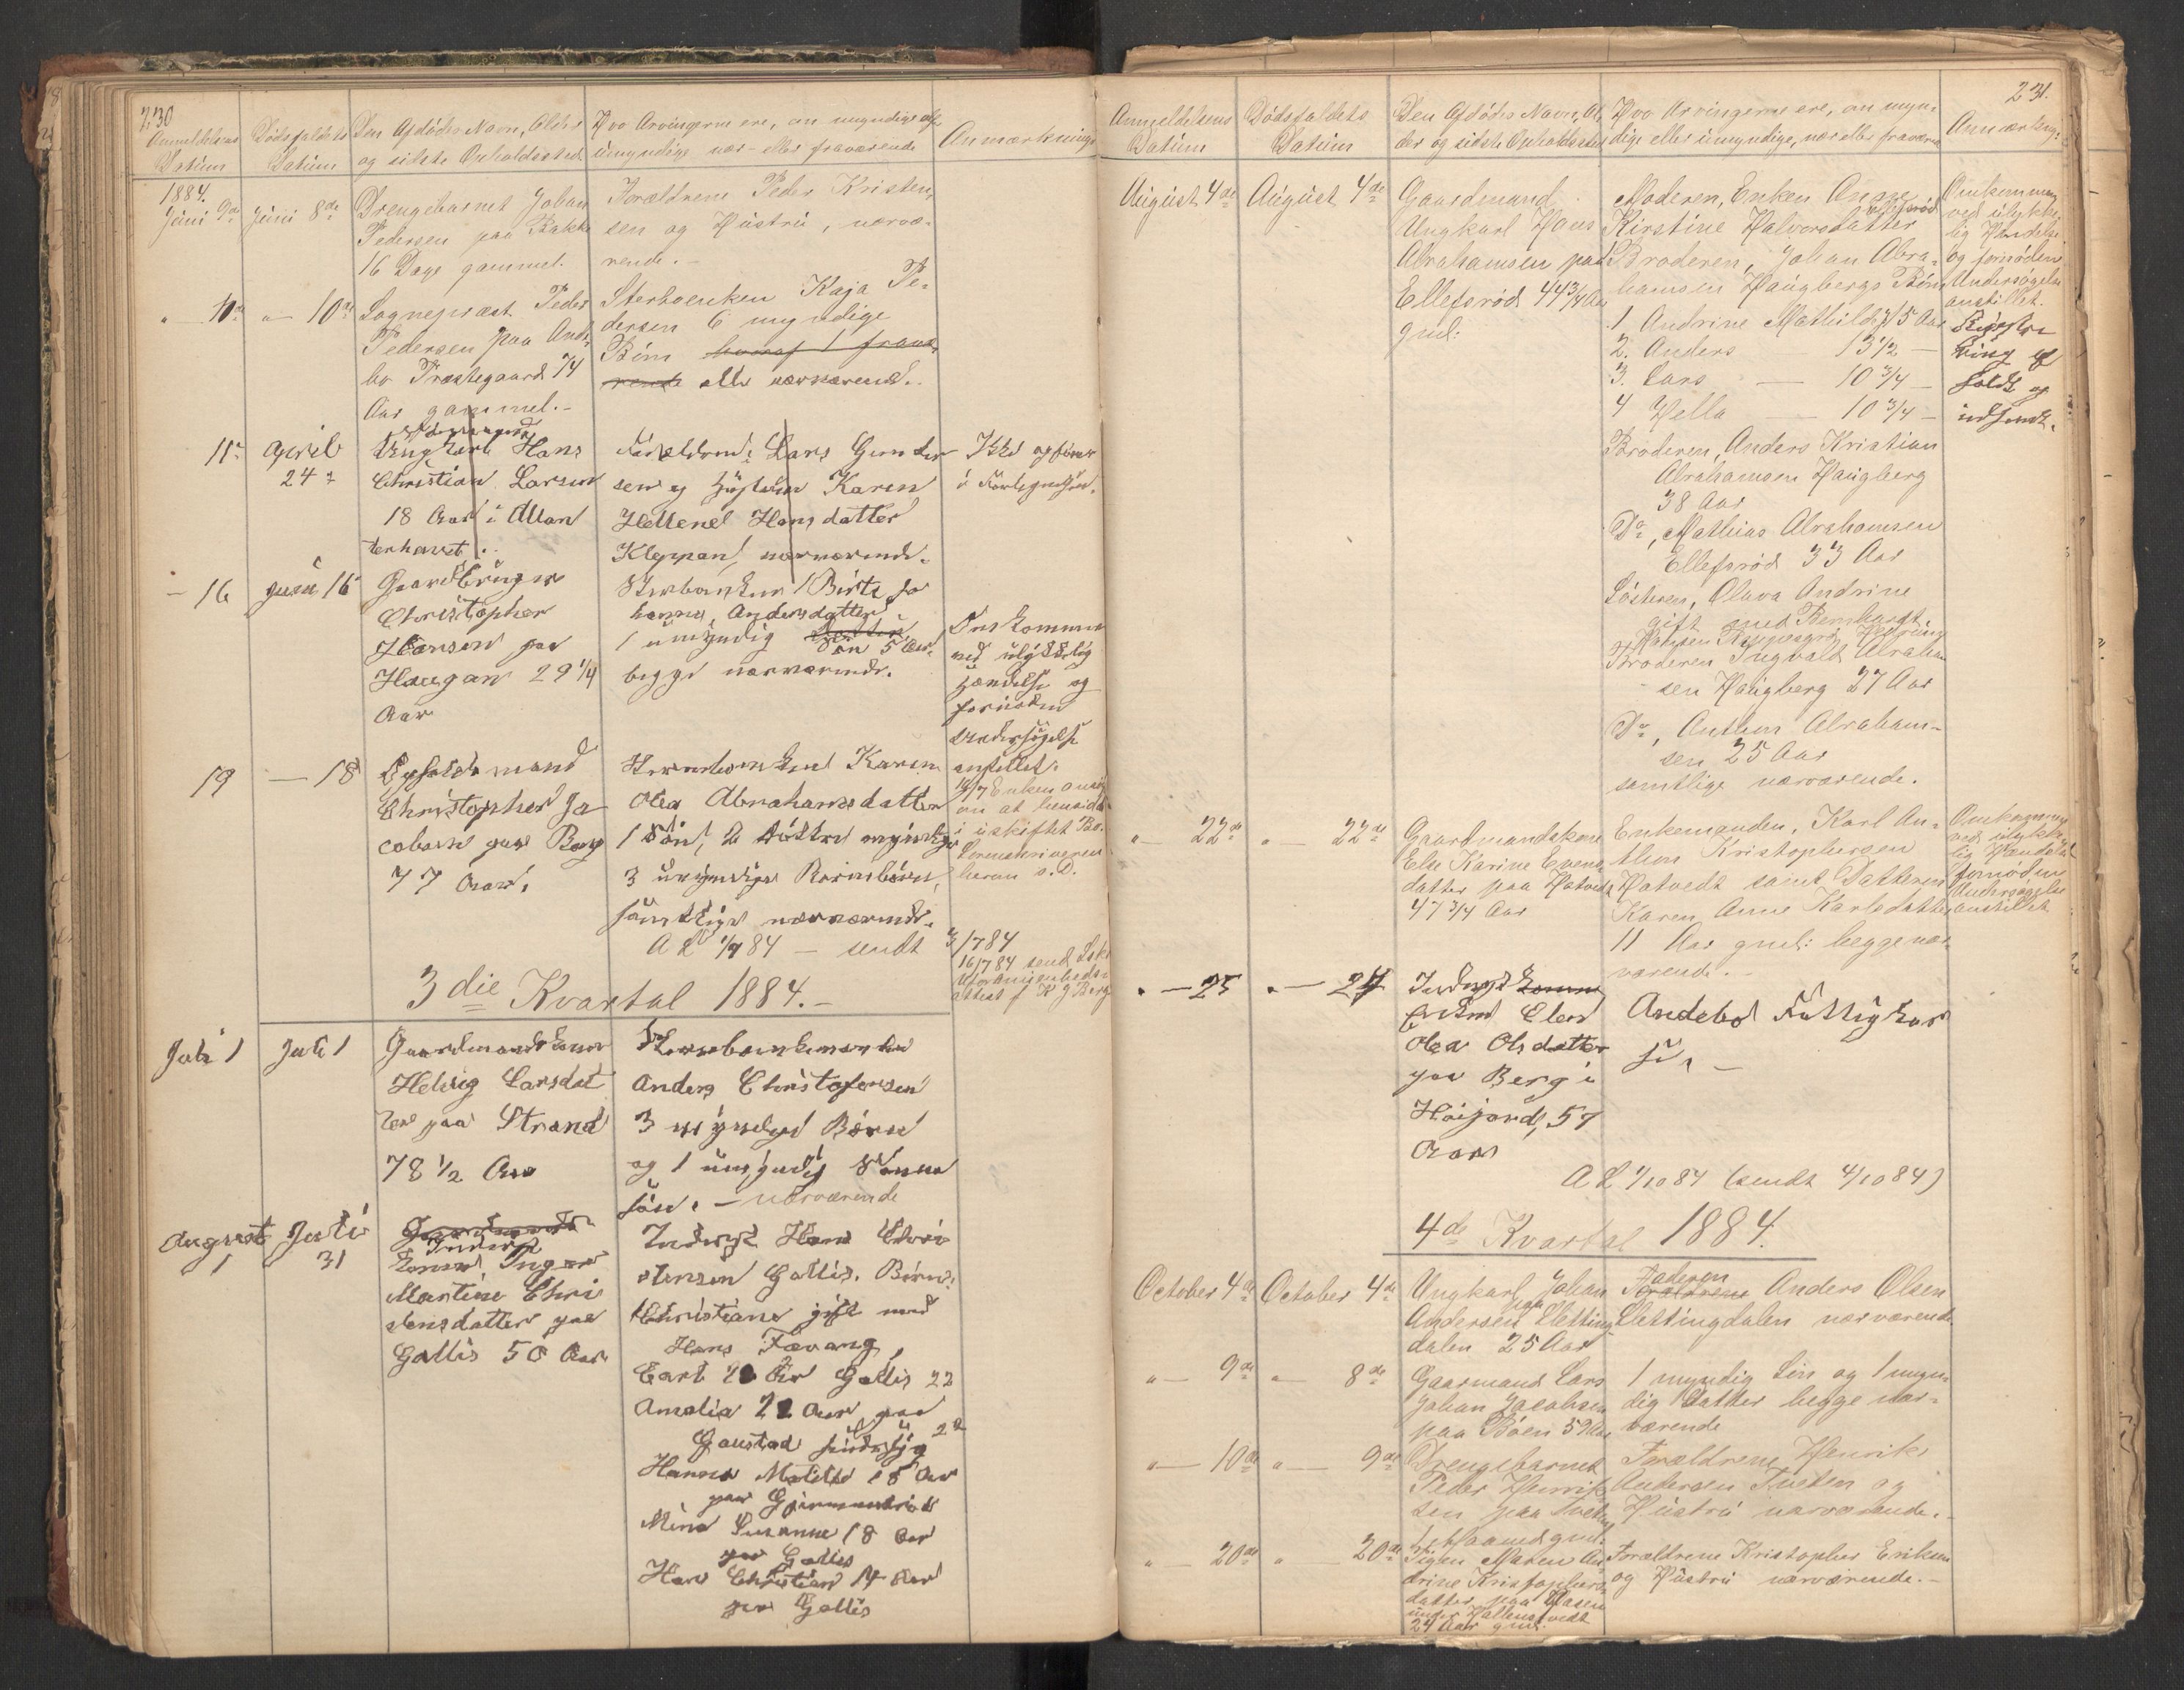 230
Anmeldelsens Datum
Dødsfaldets Datum
Den Afdødes Navn, Alder
og sidste Opholdssted
Hvo Arvingerne ere, om myndige eller
umyndige nær- eller fraværende
Anmærkning
1884.
Juni 9de Juni 8de
Drengebarnet Johan
Pedersen paa Bakke
16 Dage gammel.
Forældrene Peder Kristen-
sen og Hustru, nærvæ-
rende.-
" 10de " 10de
Sognepræst Peder
Pedersen paa Ande-
bo Præstegaard 74
Aar gammel.-
Sterboenken Kaja Pe-
dersen 6 myndige
Børn hvoraf 1 fravæ-
rende alle nærværende.
11te April
24de
Ungkarl Hans
Christian Larsen
18 Aar i
Forældrene Lars Gunder
sen og Hustru Karen
Hellene Hansdatter
Kleppan, nærværende.
Ikke opføres
i Fortegnelsen.
- 16 Juni 16
Gaardbruger
Christopher
Hansen paa
Haugan 29 1/4
Aar
Sterboenken Birte Jo
hanne Andersdatter,
1 umyndig Søn 5 Aar
begge nærværende.
Omkommen
ved ulykkelig
Hændelse og
fornøden
Undersøgelse
anstillet.
19 - 18
Opholdsmand
Christopher Ja
cobsen paa Berg
77 Aar.
Sterboenken Karen
Olea Abrahamsdatter
1 Søn, 2 Døttre myndige
3 umyndige Børnebørn,
samtlige nærværende.
Enken ansøgt
om at hensidde
i uskiftet Bo.
Sorenskriveren
herom s. D.
A L 1/7 84 - sendt 3/7 84
16/7 84 send
attest f K J Berg
3die Kvartal 1884.-
Juli 1 Juli 1
Gaardmandskone
Helvig Larsdat
ter paa Strand
78 1/2 Aar
Sterboenkemanden
Anders Christofersen
3 myndige Børn
og 1 umyndig Sønne
søn. - nærværende
August Juli
1 31
Gaardmands
Inderst
kone Inger
Martine Chri
stensdatter paa
Gallis 50 Aar
Inderst Hans Chri
stensen Gallis. Børn:
Christiane gift med
Hans Fævang,
Carl Aar Gallis 22
Amalia 22 Aar paa
Gaustad sindssyg 22
Hanna Matilde 18 Aar
paa
Mina Susanne 18 Aar
paa Gallis
Hans Christian 14 Aar
paa Gallis
231.
Anmeldelsens
Datum
Dødsfaldets
Datum
Den Afdødes Navn, Al-
der og sidste Opholdssted
Hvo Arvingerne ere, om myn-
dige eller umyndige, nær eller fraværen
Anmærkng:
August 4de August 4de
Gaardmand
Ungkarl Hans
Abrahamsen paa
Ellefsrød 44 3/4 Aar
gml:
Moderen, Enken Anne
Ellefsrød
Kirstine Halvorsdatter
Broderen, Johan Abra-
hamsen Haugbergs Børn
1 Andrine Mathilde 15 Aar
2. Anders - 13 1/2 -
3. Lars - 10 3/4 -
4 Hella - 10 3/4 -
Broderen, Anders Kristian
Abrahamsen Haugberg
38 Aar
Do, Mathias Abrahamsen
Ellefsrød 33 Aar
Søsteren, Olava Andrine
gift med Bernhardt
Broderen Ingvald Abraham
sen Haugberg 27 Aar
Do, Anthon Abraham-
sen 25 Aar
samtlige nærværende.
Omkommen
ved ulykke-
lig Hændelse
og fornøden
Undersøgelse
anstillet.
Registre
ring af
holdt og
indsendt.
" 22de " 22de
Gaardmandskone
Else Karine Evens-
datter paa Hotvedt
47 3/4 Aar
Enkemanden, Karl An-
thon Kristophersen
Hotvedt samt Datteren
Karen Anne Karlsdatter
11 Aar gml: begge nær-
værende.-
Omkommen
ved ulykke-
lig Hændelse
fornøden
Undersøgelse
anstillet
" - 25 " - 24
Inderst
Enken Elen
Olea Olsdatter
paa Berg i
Høijord, 57
Aar
Andebo Fattigkas
se. -
A L 1/10 84 (sendt 4/10 84)
4de Kvartal 1884.
October 4de October 4de
Ungkarl Johan
Andersen paa Sletting-
dalen 25 Aar
Faderen
Forældrene Anders Olsen
Slettingdalen nærværende
" - 9de " - 8de
Gaarmand Lars
Johan Jacobsen
paa Bøen 59 Aar
1 myndig Søn og 1 myn-
dig Datter begge nær-
værende
" - 10de " - 9de
Drengebarnet
Peder Henrik-
sen paa Tveten
Forældrene Henrik
Andersen Tveten og
Hustru nærværende.-
" - 20de " - 20de
Pigen Maren An-
drine Kristophers-
datter paa Aasen
under Hallenstvedt
24 Aar gml.
Forældrene Kristopher Eriksen
og Hustru nærværende.-